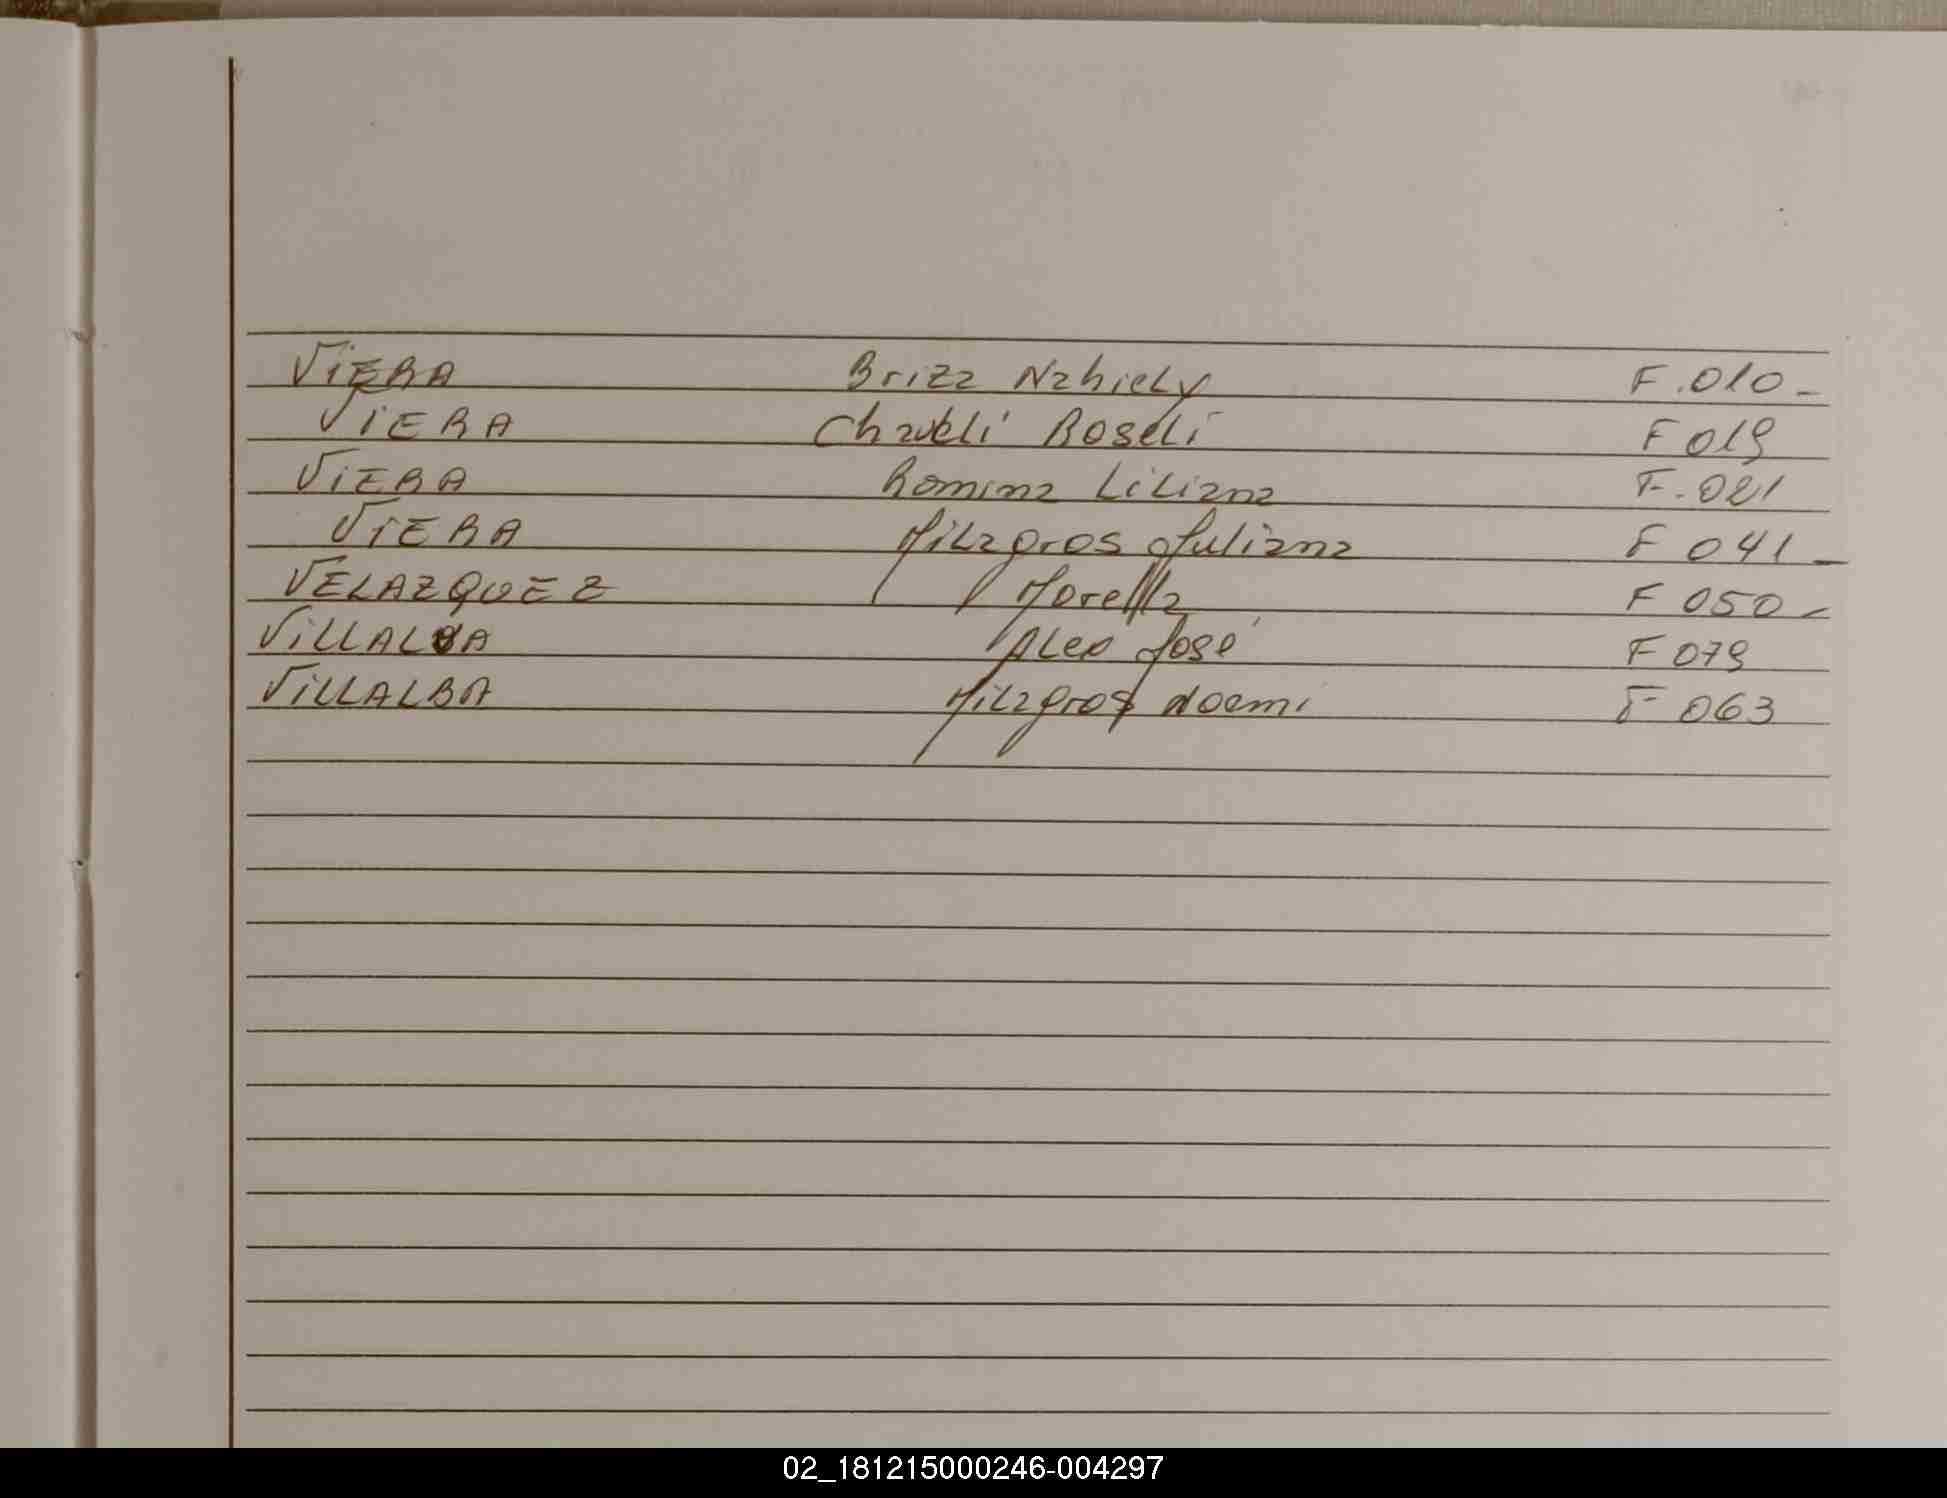 VIERA Briza Nahiely F.010-
VIERA Chaveli Roseli F 019
VIERA Romina Liliana F.021
VIERA Milagros Juliana F 041-
VELAZQUEZ Morella F 050-
VILLALBA Alex José F 079
VILLALBA Milagros Noemi F 063
02_181215000246-004297